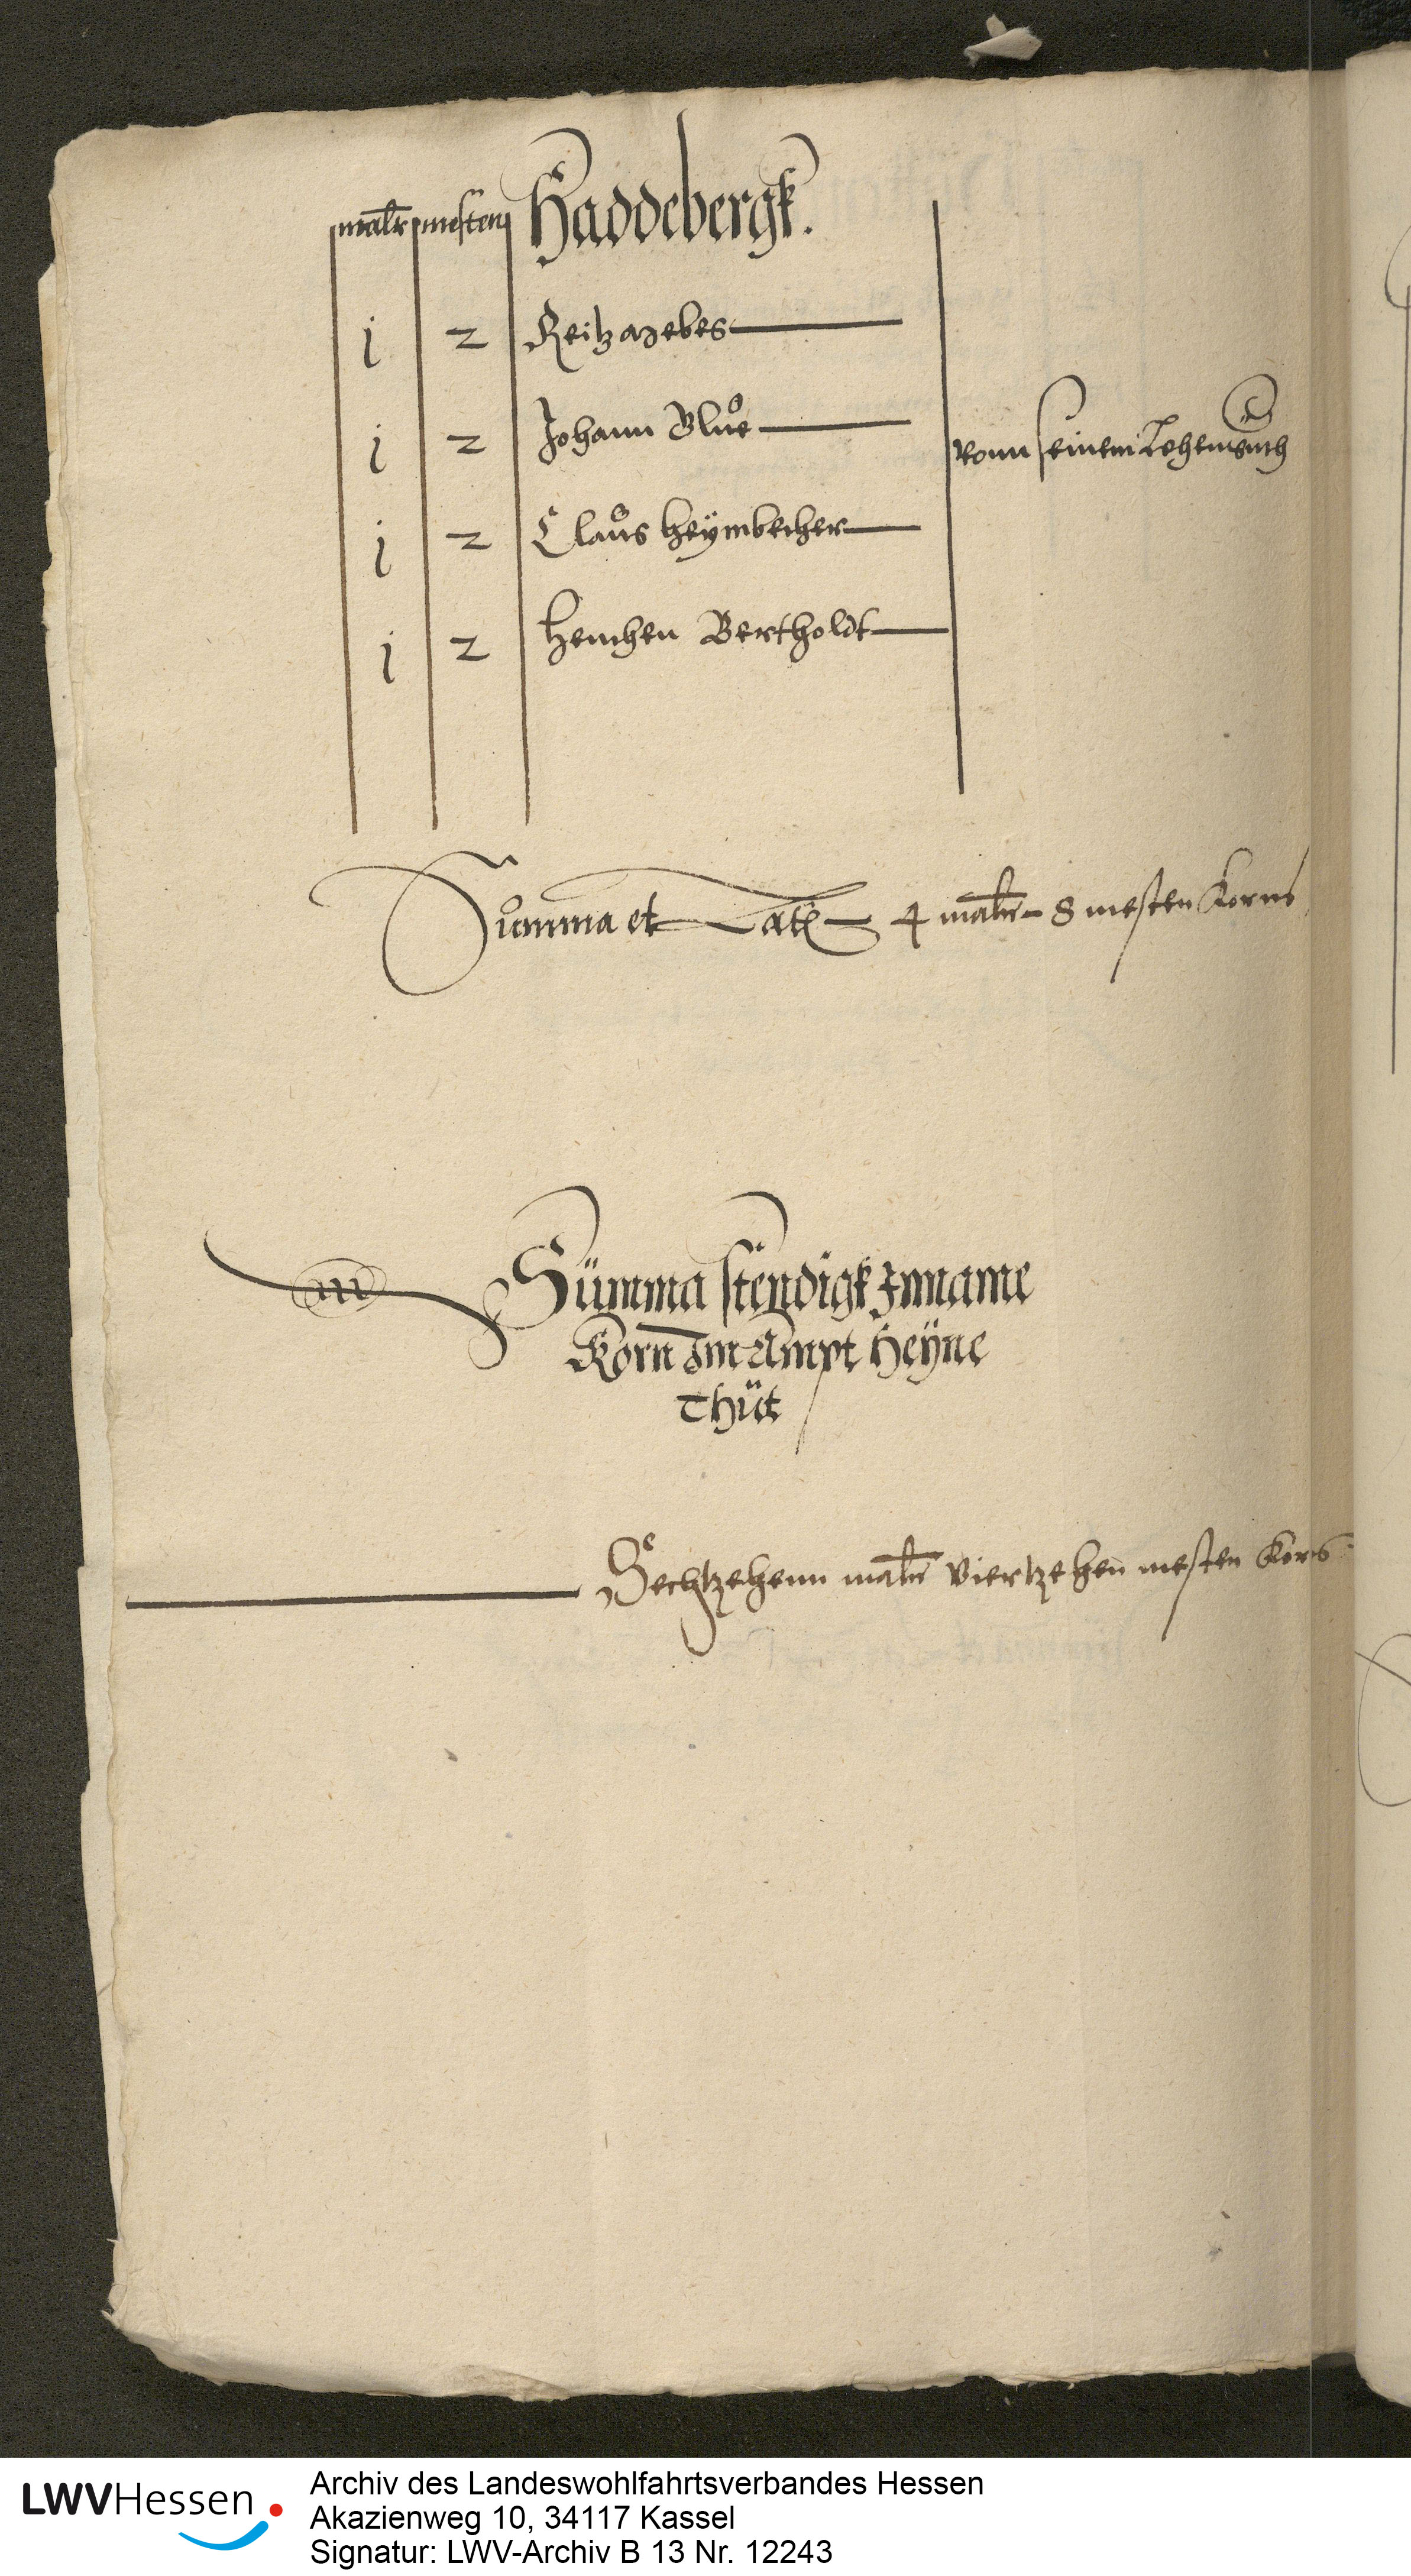 malr mesten Haddebergk.
j 2 Reitz Mebes
j 2 Johann Blue vonn seinem Lehen
j 2 Claus Heÿmbecher
j 2 Henchen Bertholdt
Summa et Latus 4 malr 8 mesten Korns
Summa stendigk Inname
Korn Im Ampt Heÿne
Thut
Sechtzehenn malr viertzehen mesten Korns
LWVHessen
Archiv des Landeswohlfahrtsverbandes Hessen
Akazienweg 10, 34117 Kassel
Signatur: LWV-Archiv B 13 Nr. 12243